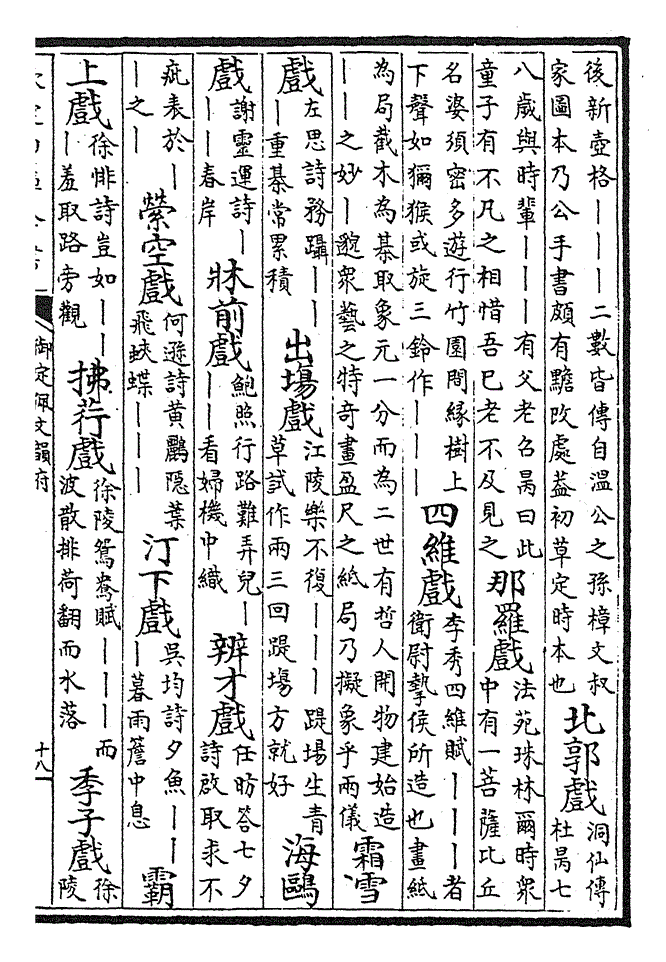 後新壺格｜｜｜二數皆傳自溫公之孫樟文叔
家圖本乃公手書頗有黵改處蓋初草定時本也
北郭戲
洞仙傳
杜昺七
八歲與時輩｜｜｜有父老召昺曰此
童子有不凡之相惜吾已老不及見之
那羅戲
法苑珠林爾時衆
中有一菩薩比丘
名婆須密多遊行竹園間緣樹上
下聲如獼猴或旋三鈴作｜｜｜
四維戲
李秀四維賦｜｜｜者
衛尉摯侯所造也畫紙
為局截木為棊取象元一分而為二世有哲人開物建始造
｜｜之妙｜邈衆藝之特奇畫盈尺之紙局乃擬象乎兩儀
霜雪
戲
左思詩務躡｜｜
｜重棊常累積
出塲戲
江陵樂不復｜｜｜踶塲生青
草試作兩三回踶塲方就好
海鷗
戲
謝靈運詩｜
｜｜春岸
牀前戲
鮑照行路難弄兒｜
｜｜看婦機中織
辨才戲
任昉答七夕
詩啟取求不
疵表於｜
｜之｜
縈空戲
何遜詩黃鸝隱葉
飛蛺蝶｜｜｜
汀下戲
吳均詩夕魚｜｜
｜暮雨簷中息
霸
上戲
徐悱詩豈如｜｜
｜羞取路旁觀
拂荇戲
徐陵鴛鴦賦｜｜｜而
波散排荷翻而水落
季子戲
徐
陵
御定佩文韻府
十八